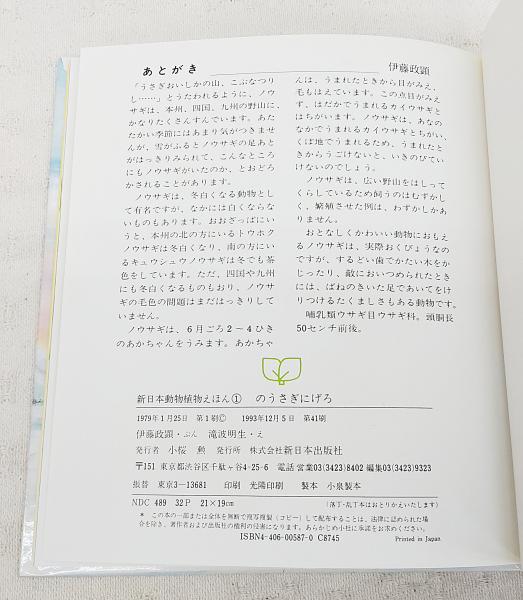 あとがき
伊藤政顕
「うさぎおいしかの山、こぶなつり
し……」とうたわれるように、ノウ
サギは、本州、四国、九州の野山に、
かなりたくさんすんでいます。あた
たかい季節にはあまり気がつきませ
んが、雪がふるとノウサギの足あと
がはっきりみられて、こんなところ
にもノウサギがいたのか、とおどろ
かされることがあります。
ノウサギは、冬白くなる動物とし
て有名ですが、なかには白くならな
いものもあります。おおざっぱにい
うと、本州の北の方にいるトウホク
ノウサギは冬白くなり、南の方にい
るキュウシュウノウサギは冬でも茶
色をしています。ただ、四国や九州
にも冬白くなるものもおり、ノウサ
ギの毛色の問題はまだはっきりして
いません。
ノウサギは、6月ごろ2～4ひき
のあかちゃんをうみます。あかちゃ
んは、うまれたときから目がみえ、
毛もはえています。この点目がみえ
ず、はだかでうまれるカイウサギと
はちがいます。ノウサギは、あなの
なかでうまれるカイウサギとちがい、
くぼ地でうまれるため、うまれたと
きからうごけないと、いきのびてい
けないのでしょう。
ノウサギは、広い野山をはしって
くらしているため飼うのはむずかし
く、繁殖させた例は、わずかしかあ
りません。
おとなしくかわいい動物におもえ
るノウサギは、実際おくびょうなの
ですが、するどい歯でかたい木をか
じったり、敵においつめられたとき
には、ばねのきいた足であいてをけ
りつけるたくましさもある動物です。
哺乳類ウサギ目ウサギ科。頭胴長
50センチ前後。
新日本動物植物えほん① のうさぎにげろ
1979年1月25日 第1刷© 1993年12月5日 第41刷
伊藤政顕・ぶん 滝波明生・え
発行者 小桜 勲 発行所 株式会社新日本出版社
〒151 東京都渋谷区千駄ヶ谷4-25-6 電話 営業03(3423)8402 編集03(3423)9323
振替 東京3-13681 印刷 光陽印刷 製本 小泉製本
NDC 489 32P 21×19cm (落丁・乱丁本はおとりかえいたします)
* この本の一部または全体を無断で複写複製（コピー）して配布することは、法律に認められた場
合を除き、著作者および出版社の権利の侵害になります。あらかじめ小社に承諾をお求めください。
ISBN4-406-00587-0 C8745
Printed in Japan